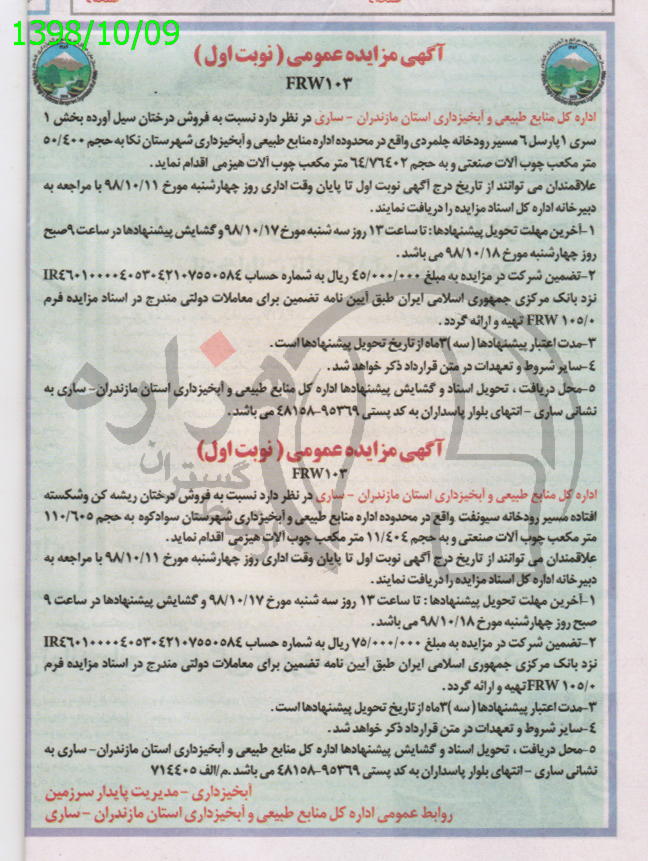 1398/10/09
آگهی مزایده عمومی ( نوبت اول )
FRW۱۰۳
اداره کل منابع طبیعی و آبخیزداری استان مازندران - ساری در نظر دارد نسبت به فروش درختان سیل آورده بخش ۱
سری ۱ پارسل ۶ مسیر رودخانه چلمردی واقع در محدوده اداره منابع طبیعی و آبخیزداری شهرستان نکا به حجم ۵۰/۴۰۰
متر مکعب چوب آلات صنعتی و به حجم ۶۴/۷۶۴۰۲ متر مکعب چوب آلات هیزمی اقدام نماید.
علاقمندان می توانند از تاریخ درج آگهی نوبت اول تا پایان وقت اداری روز چهارشنبه مورخ ۹۸/۱۰/۱۱ با مراجعه به
دبیرخانه اداره کل اسناد مزایده را دریافت نمایند.
۱-آخرین مهلت تحویل پیشنهادها: تا ساعت ۱۳ روز سه شنبه مورخ ۹۸/۱۰/۱۷ و گشایش پیشنهادها در ساعت ۹صبح
روز چهارشنبه مورخ ۹۸/۱۰/۱۸ می باشد.
۲-تضمین شرکت در مزایده به مبلغ ۴۵/۰۰۰/۰۰۰ ریال به شماره حساب IR۴۶۰۱۰۰۰۰۴۰۵۳۰۴۲۱۰۷۵۵۰۵۸۴
نزد بانک مرکزی جمهوری اسلامی ایران طبق آیین نامه تضمین برای معاملات دولتی مندرج در اسناد مزایده فرم
FRW ۱۰۵/۰ تهیه و ارائه گردد.
۳-مدت اعتبار پیشنهادها ( سه )۳ماه از تاریخ تحویل پیشنهادها است.
۴-سایر شروط و تعهدات در متن قرارداد ذکر خواهد شد.
۵-محل دریافت ، تحویل اسناد و گشایش پیشنهادها اداره کل منابع طبیعی و آبخیزداری استان مازندران- ساری به
نشانی ساری - انتهای بلوار پاسداران به کد پستی ۹۵۳۶۹-۴۸۱۵۸ می باشد.
آگهی مزایده عمومی ( نوبت اول )
FRW۱۰۳
اداره کل منابع طبیعی و آبخیزداری استان مازندران - ساری در نظر دارد نسبت به فروش درختان ریشه کن وشکسته
افتاده مسیر رودخانه سیونفت واقع در محدوده اداره منابع طبیعی و آبخیزداری شهرستان سوادکوه به حجم ۱۱۰/۶۰۵
متر مکعب چوب آلات صنعتی و به حجم ۱۱/۴۰۴ متر مکعب چوب آلات هیزمی اقدام نماید.
علاقمندان می توانند از تاریخ درج آگهی نوبت اول تا پایان وقت اداری روز چهارشنبه مورخ ۹۸/۱۰/۱۱ با مراجعه به
دبیرخانه اداره کل اسناد مزایده را دریافت نمایند.
۱-آخرین مهلت تحویل پیشنهادها : تا ساعت ۱۳ روز سه شنبه مورخ ۹۸/۱۰/۱۷ و گشایش پیشنهادها در ساعت ۹
صبح روز چهارشنبه مورخ ۹۸/۱۰/۱۸ می باشد.
۲-تضمین شرکت در مزایده به مبلغ ۷۵/۰۰۰/۰۰۰ ریال به شماره حساب IR۴۶۰۱۰۰۰۰۴۰۵۳۰۴۲۱۰۷۵۵۰۵۸۴
نزد بانک مرکزی جمهوری اسلامی ایران طبق آیین نامه تضمین برای معاملات دولتی مندرج در اسناد مزایده فرم
FRW ۱۰۵/۰تهیه و ارائه گردد.
۳-مدت اعتبار پیشنهادها ( سه )۳ماه از تاریخ تحویل پیشنهادها است.
۴-سایر شروط و تعهدات در متن قرارداد ذکر خواهد شد.
۵-محل دریافت ، تحویل اسناد و گشایش پیشنهادها اداره کل منابع طبیعی و آبخیزداری استان مازندران- ساری به
نشانی ساری - انتهای بلوار پاسداران به کد پستی ۹۵۳۶۹-۴۸۱۵۸ می باشد .م/الف ۷۱۴۴۰۵
آبخیزداری -مدیریت پایدار سرزمین
روابط عمومی اداره کل منابع طبیعی و آبخیزداری استان مازندران - ساری